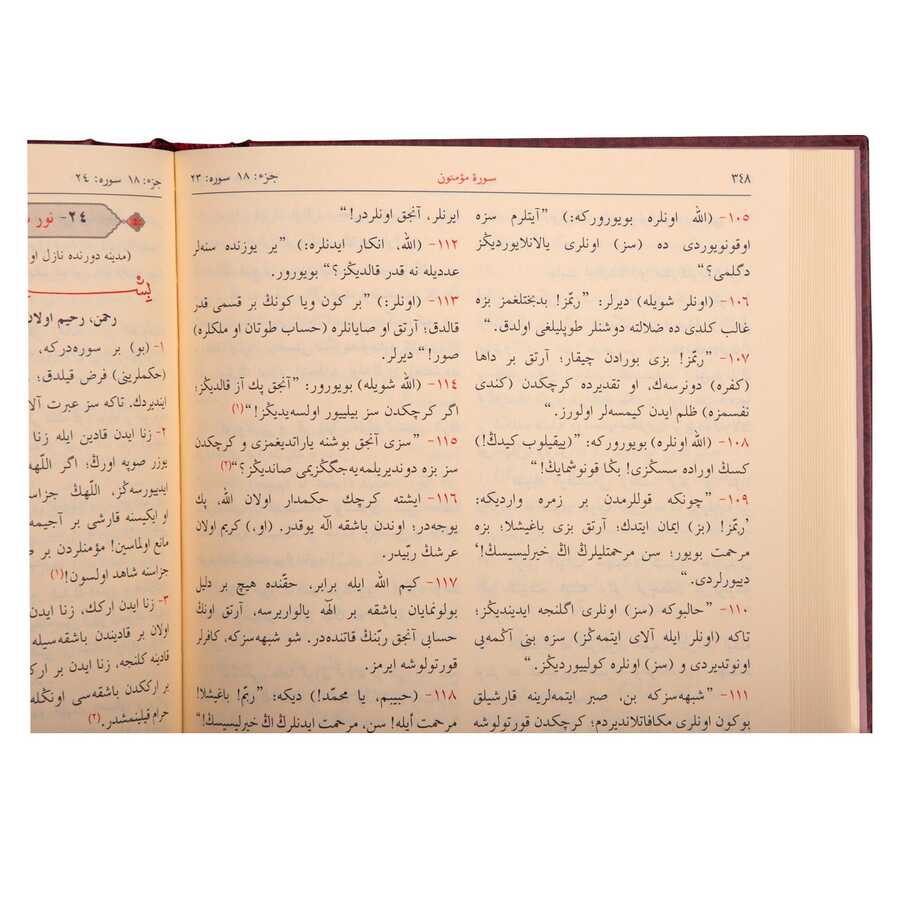 ٣٤٨
سورۀ مؤمنون
جزء: ١٨ سوره: ٢٣
١٠٥- (الله اونلره بويوروركه:) ”آيتلرم سزه
اوقونويوردى ده (سز) اونلرى يالانلايورديڭز
دگلمى؟“
١٠٦- (اونلر شويله) ديرلر: ”ربّمز! بدبختلغمز بزه
غالب كلدى ده ضلالته دوشنلر طوپليلغى اولدق.“
١٠٧- ”ربّمز! بزى بورادن چيقار؛ آرتق بر داها
(كفره) دونرسەك، او تقديرده كرچكدن (كندى
نفسمزه) ظلم ايدن كيمسەلر اولورز.“
١٠٨- (الله اونلره) بويوروركه: ”(ييقيلوب كيدڭ!)
كسڭ اوراده سسڭزى! بڭا قونوشمايڭ!“
١٠٩- ”چونكه قوللرمدن بر زمره وارديكه:
’ربّمز! (بز) ايمان ايتدك؛ آرتق بزى باغيشلا؛ بزه
مرحمت بويور؛ سن مرحمتليلرڭ اڭ خيرليسيسڭ!‘
دييورلردى.“
١١٠- ”حالبوكه (سز) اونلرى اگلنجه ايدينديڭز؛
تاكه (اونلر ايله آلاى ايتمەڭز) سزه بنى آڭمەيى
اونوتديردى و (سز) اونلره كولييورديڭز.“
١١١- ”شبهەسزكه بن، صبر ايتمەلرينه قارشيلق
بوكون اونلرى مكافاتلانديردم؛ كرچكدن قورتولوشه
ايرنلر، آنجق اونلردر!“
١١٢- (الله، انكار ايدنلره:) ”ير يوزنده سنەلر
عدديله نه قدر قالديڭز؟“ بويورور.
١١٣- (اونلر:) ”بر كون ويا كونڭ بر قسمى قدر
قالدق؛ آرتق او صايانلره (حساب طوتان او ملكلره)
صور!“ ديرلر.
١١٤- (الله شويله) بويورور: ”آنجق پك آز قالديڭز؛
اگر كرچكدن سز بيلييور اولسەيديڭز!“(١)
١١٥- ”سزى آنجق بوشنه ياراتديغمزى و كرچكدن
سز بزه دونديريلمەيەجگڭزيمى صانديڭز؟“(٢)
١١٦- ايشته كرچك حكمدار اولان الله، پك
يوجەدر؛ اوندن باشقه الٰه يوقدر. (او،) كريم اولان
عرشڭ ربّيدر.
١١٧- كيم الله ايله برابر، حقّنده هيچ بر دليل
بولونمايان باشقه بر الٰهه يالواريرسه، آرتق اونڭ
حسابى آنجق ربّنڭ قاتندەدر. شو شبهەسزكه، كافرلر
قورتولوشه ايرمز.
١١٨- (حبيبم، يا محمّد!) ديكه: ”ربّم! باغيشلا!
مرحمت أيله! سن، مرحمت ايدنلرڭ اڭ خيرليسيسڭ!“
جزء: ١٨ سوره: ٢٤
٢٤- نور
(مدينه دورنده نازل او
رحمن، رحيم اولان
١- (بو) بر سورەدركه،
(حكملرينى) فرض قيلدق؛
اينديردك. تاكه سز عبرت آلا
٢- زنا ايدن قادين ايله زنا
يوزر صوپه اورڭ؛ اگر اللّٰهه
ايدييورسەڭز، اللّٰهڭ جزاسـ
او ايكيسنه قارشى بر آجيمه
مانع اولماسين! مؤمنلردن بر
جزاسنه شاهد اولسون!(١)
٣- زنا ايدن اركك، زنا ايدن
اولان بر قاديندن باشقەسيله
قادينه كلنجه، زنا ايدن بر اركـ
بر ارككدن باشقەسى اونڭله
حرام قيلينمشدر.(٢)